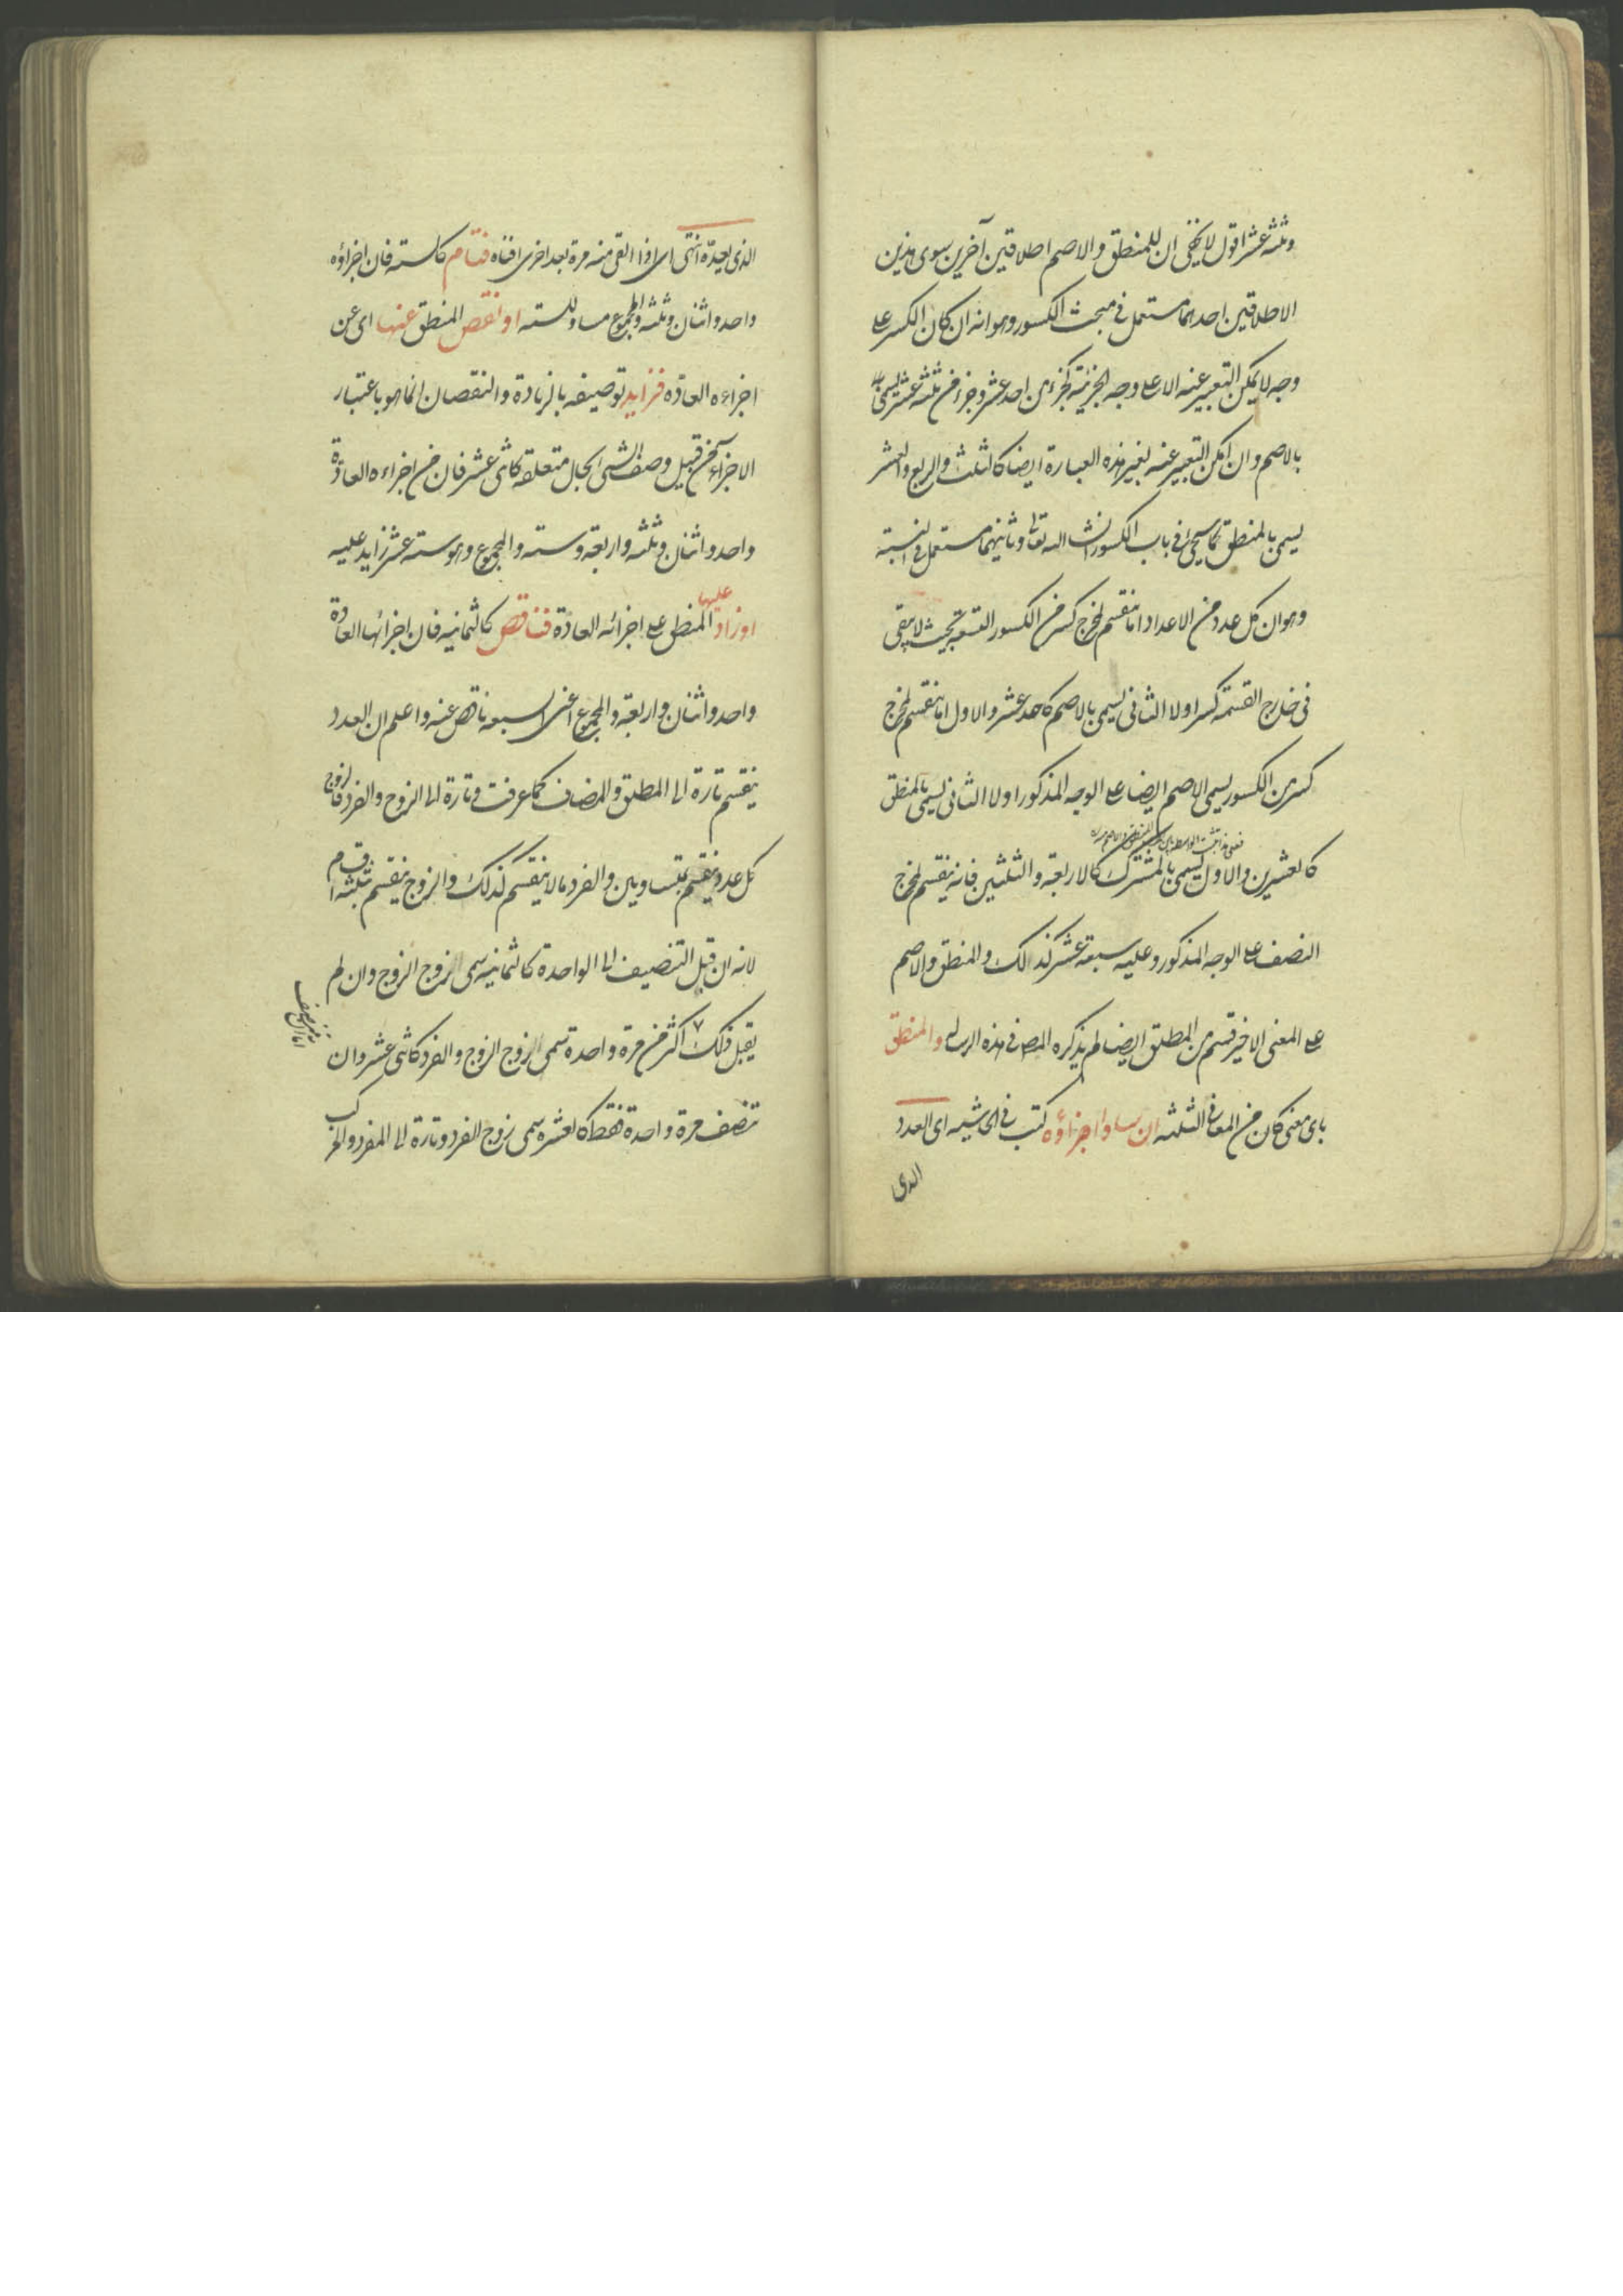 وثلثه عشر اقول لا يخفى ان للمنطق والاصم اطلاقين آخرين سوى هذين
الاطلاقين احدهما مستعمل فى مبحث الكسور وهو انه ان كان الكسر على
وجه لا يمكن التعبير عنه الا على وجه الجزئية كجزء من احد عشر وجزء من ثلثه عشر يسمى
بالاصم وان امكن التعبير عنه بغير هذه العبارة ايضا كالثلث والربع والعشر
يسمى بالمنطق كما سيجئ فى باب الكسور انشاء الله تعالى وثانيهما مستعمل فى النسبته
وهو ان كل عدد من الاعداد اما ينقسم لمخرج كسر من الكسور التسعة بحيث لا يبقى
فى خارج القسمة كسر اولا الثانى يسمى بالاصم كاحد عشر والاول اما ينقسم لمخرج
كسر من الكسور يسمى الاصم ايضا على الوجه المذكور اولا الثانى يسمى بالمنطق
كالعشرين والاول يسمى بالمشترك كالاربعة والثلثين فانه ينقسم لمخرج
النصف على الوجه المذكور وعليه سبعة عشر كذالك والمنطق والاصم
على المعنى الاخير قسم من المطلق ايضا لم يذكره المص فى هذه الرساله والمنطق
باى معنى كان من المعانى الثلثه ان ساوا اجزاؤه كتب فى الحاشيه اى العدد
الذى
الذى يعدّه انتهى اى اذا القى منه مرة بعد اخرى افناه فتام كالسته فان اجزاؤه
واحد واثنان وثلثه والمجموع مساو للسته او نقص المنطق عنها اى عن
اجزاءه العادّه فزايد توصيفه بالزيادة والنقصان انما هو باعتبار
الاجزاء من قبيل وصف الشئ بحال متعلقه كاثنى عشر فان من اجزاءه العادّة
واحد واثنان وثلثه واربعة وسته والمجموع وهو سته عشر زايد عليه
او زاد عليها المنطق على اجزائه العادّة فناقص كالثمانيه فان اجزائها العادّة
واحد واثنان واربعة والمجموع اعنى السبعه ناقص عنه واعلم ان العدد
ينقسم تارة الى المطلق والمضاف كما عرفت وتارة الى الزوج والفرد فالزوج
كل عدد ينقسم بمتساويين والفرد ما لا ينقسم كذلك والزوج ينقسم بثلثه اقسام
لانه ان قبل التنصيف الى الواحدة كالثمانيه سمى زوج الزوج وان لم
يقبل ذلك اكثر من مرة واحدة تسمى زوج الزوج والفرد كاثنى عشر وان
تنصف مرة واحدة فقط كالعشره سمى زوج الفرد وتارة الى المفرد والمركب